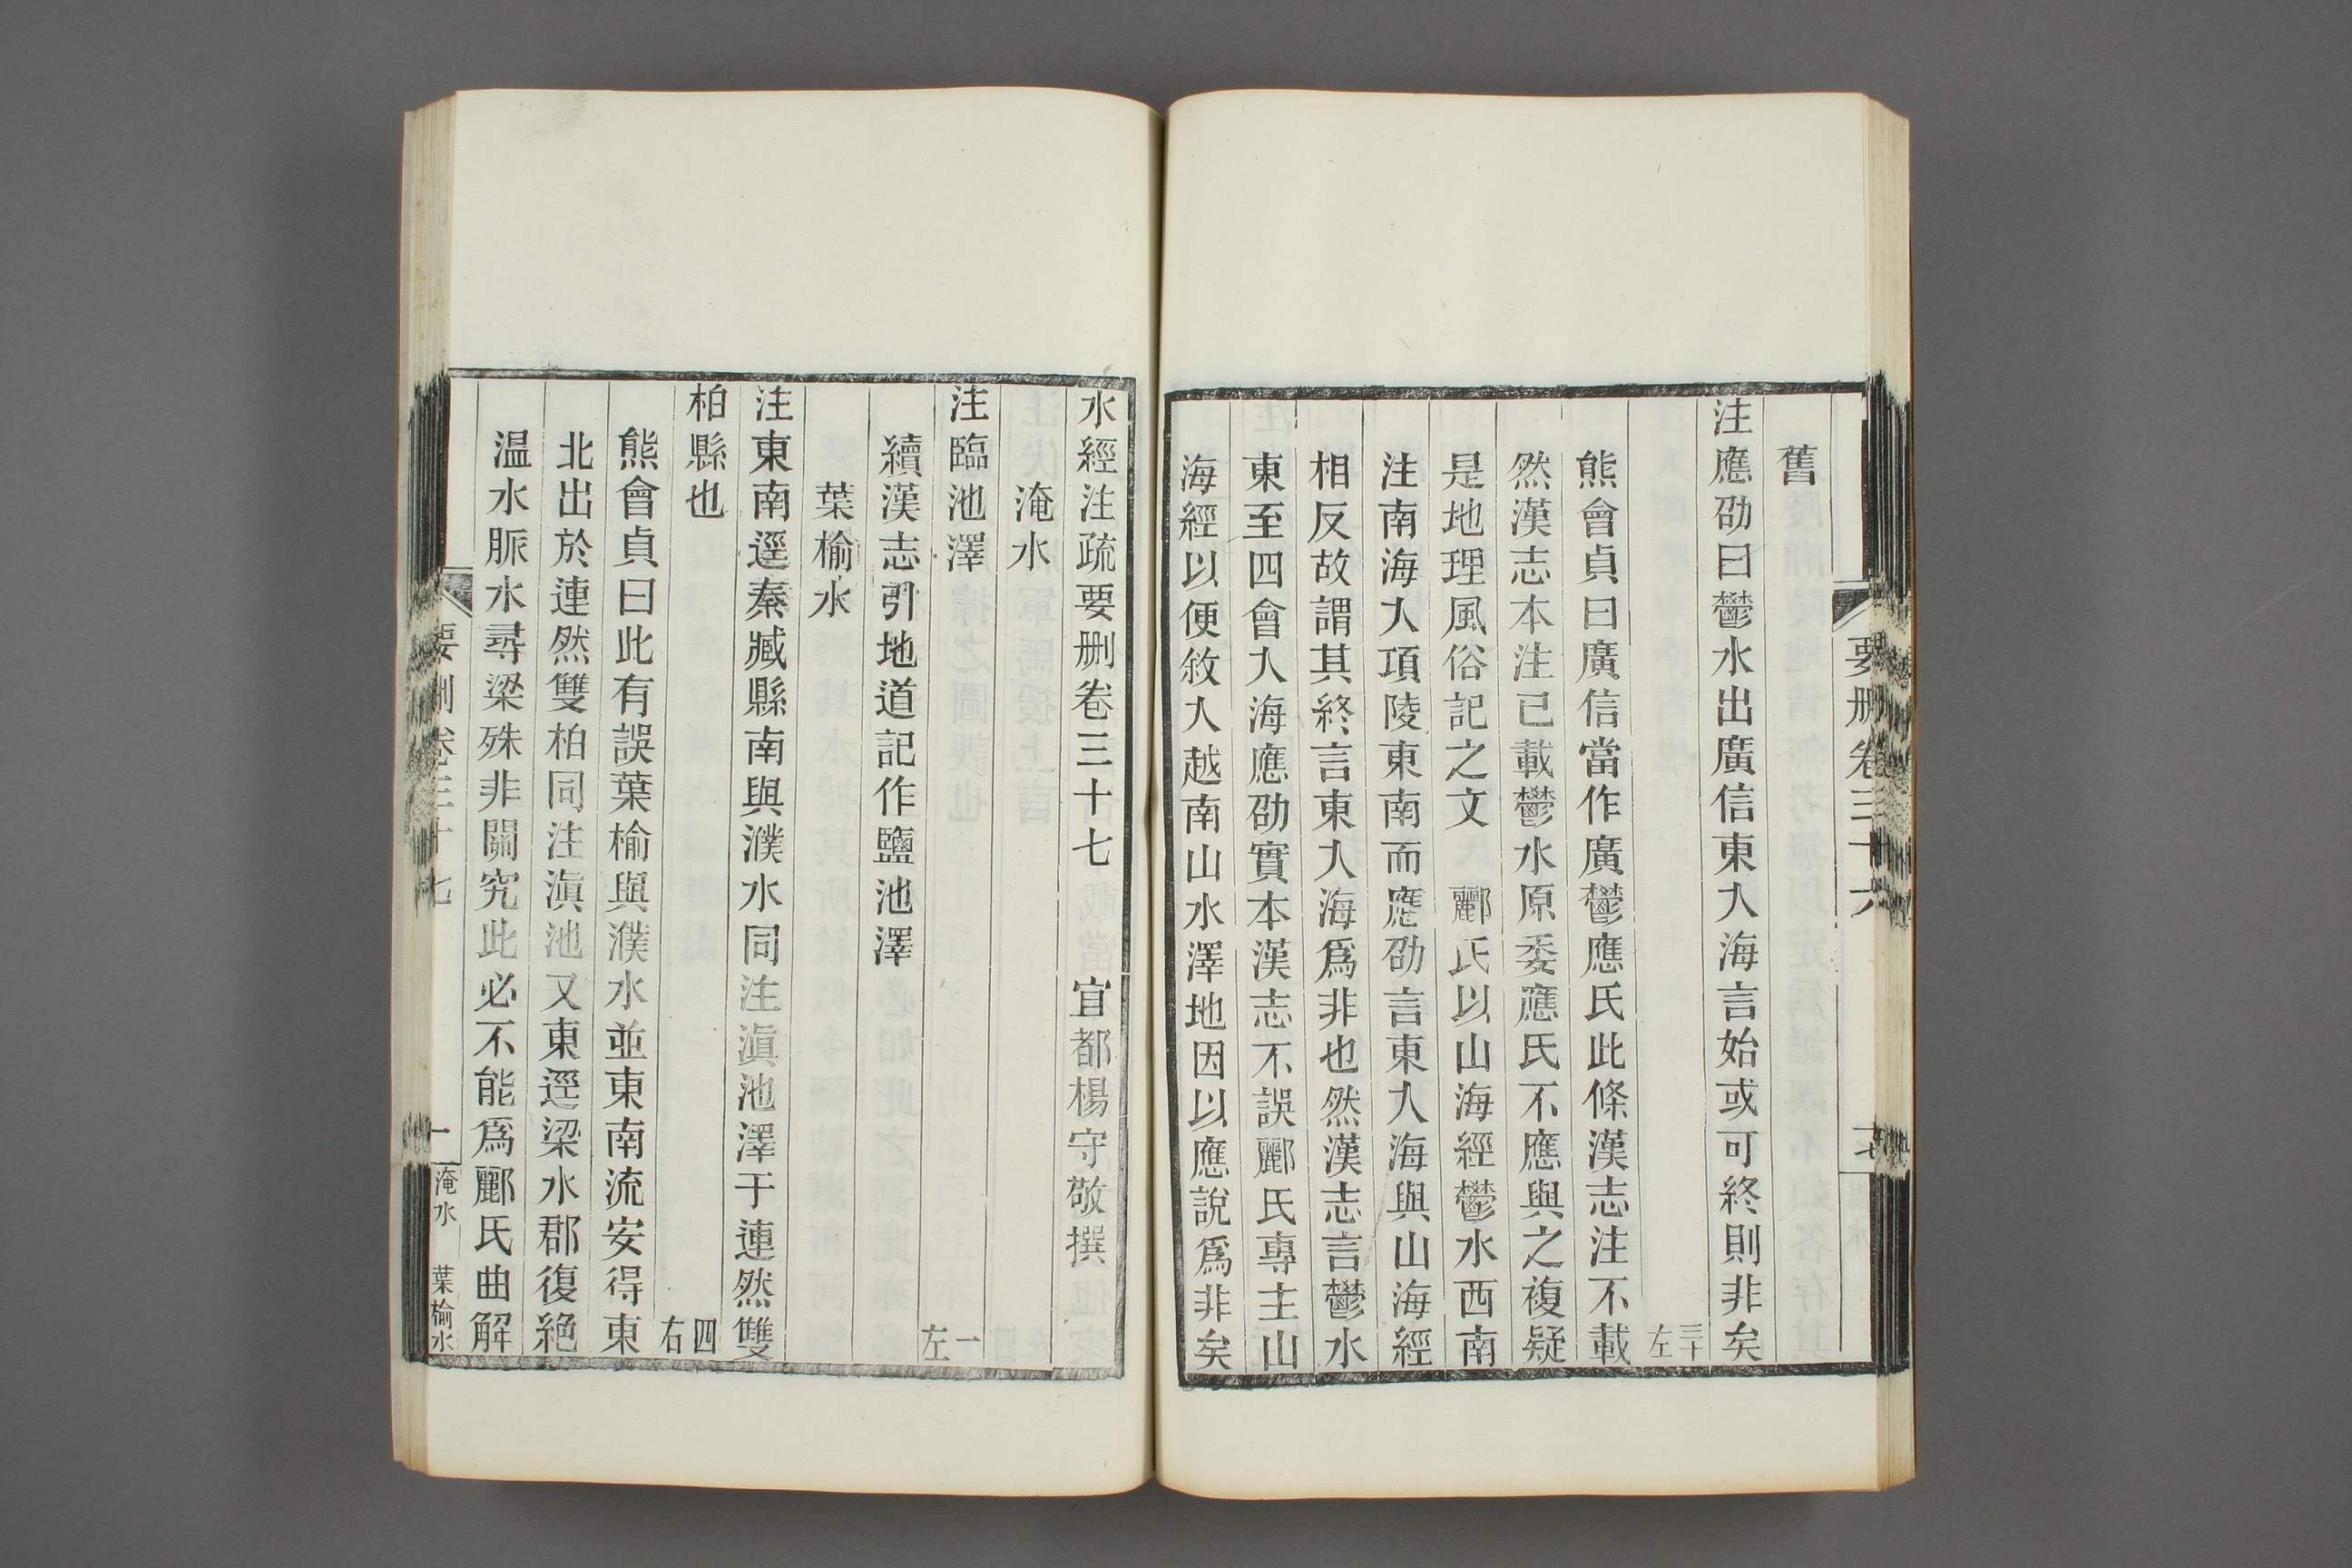 要刪卷三十六
舊
注應劭曰鬱水出廣信東入海言始或可終則非矣
三十左
熊會貞曰廣信當作廣鬱應氏此條漢志注不載
然漢志本注已載鬱水原委應氏不應與之複疑
是地理風俗記之文 酈氏以山海經鬱水西南
注南海入項陵東南而應劭言東入海與山海經
相反故謂其終言東入海爲非也然漢志言鬱水
東至四會入海應劭實本漢志不誤酈氏專主山
海經以便敘入越南山水澤地因以應說爲非矣
水經注疏要刪卷三十七 宜都楊守敬撰
淹水
注臨池澤 一左
續漢志引地道記作鹽池澤
葉榆水
注東南逕秦臧縣南與濮水同注滇池澤于連然雙
柏縣也 四右
熊會貞曰此有誤葉榆與濮水並東南流安得東
北出於連然雙柏同注滇池又東逕梁水郡復絶
温水脈水尋梁殊非關究此必不能爲酈氏曲解
要刪卷三十七 一 淹水 葉榆水